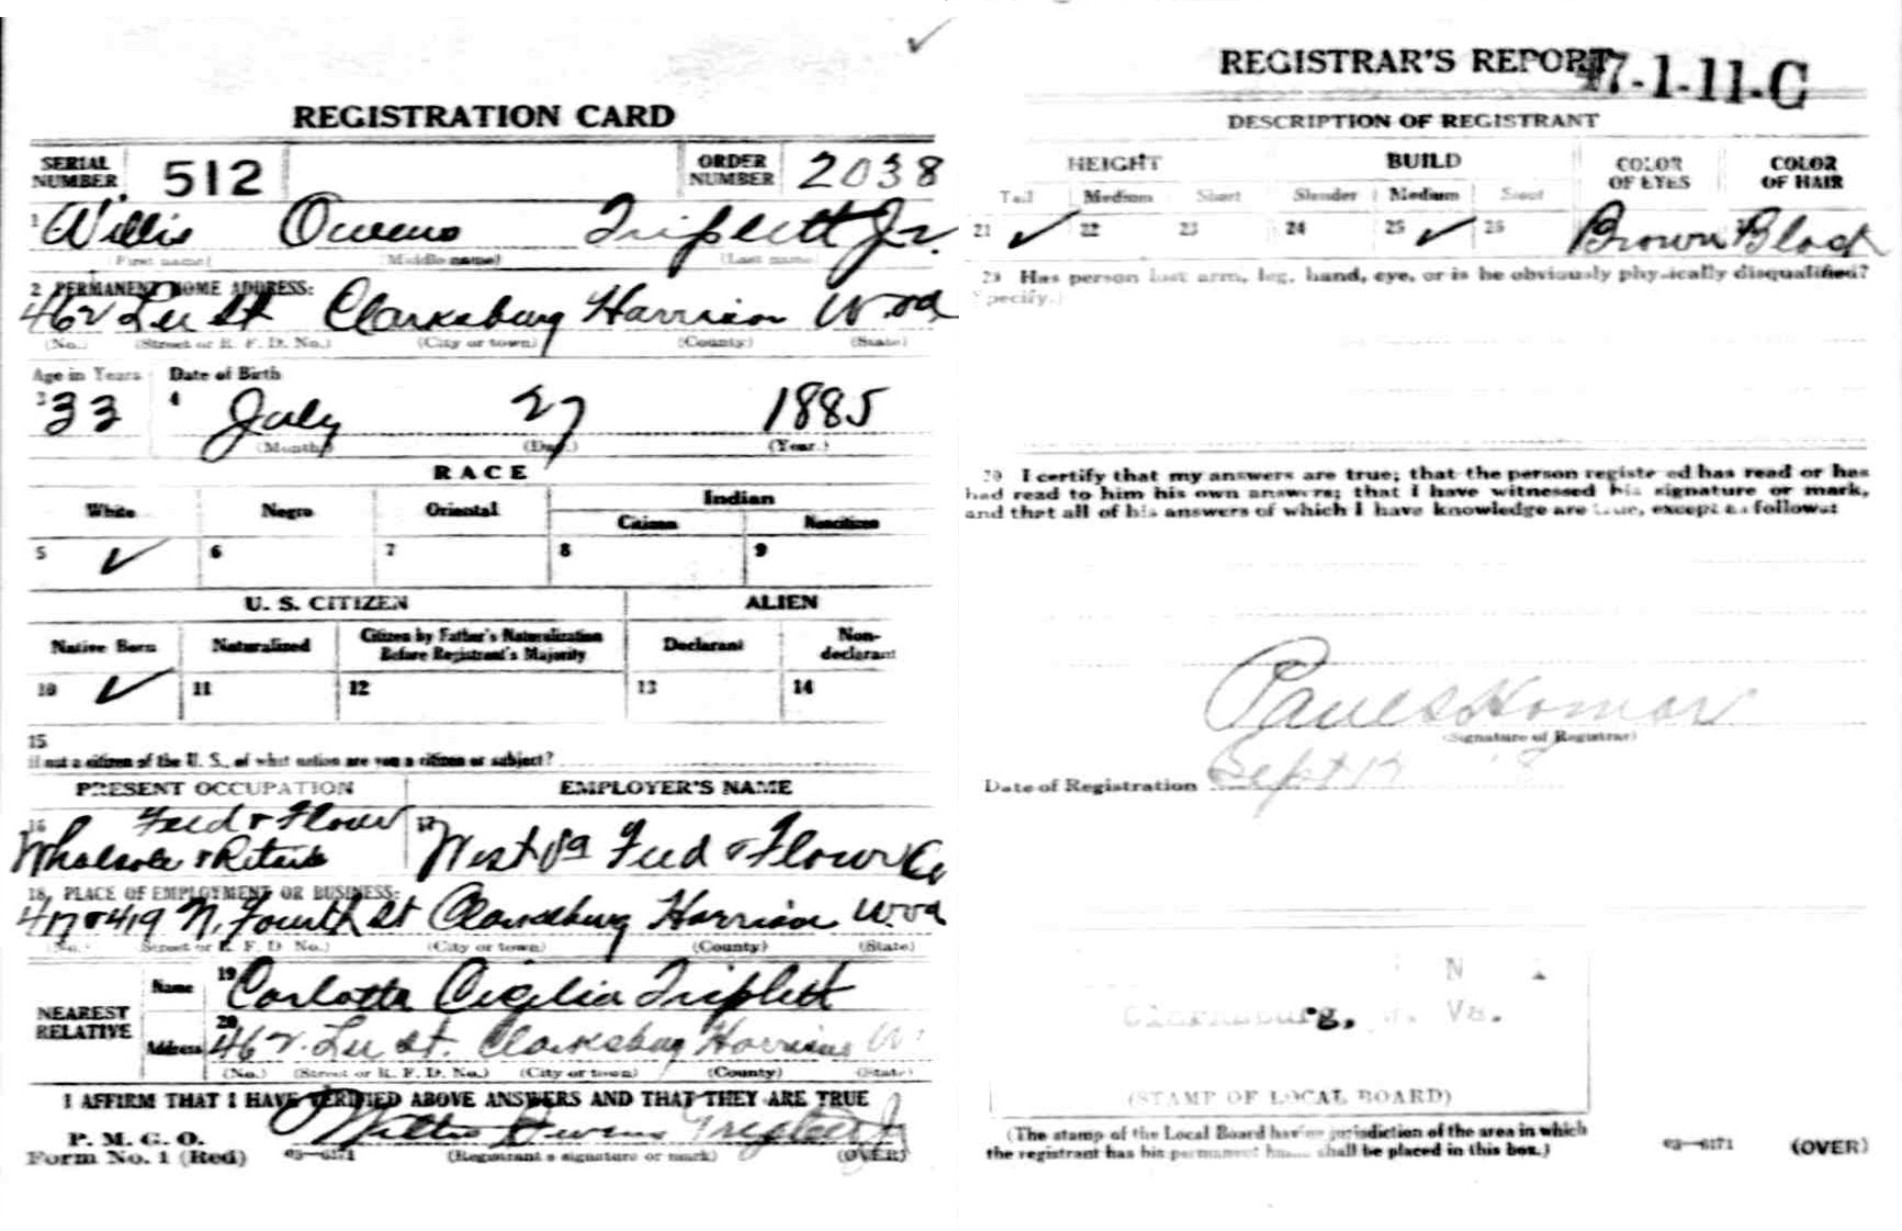 REGISTRATION CARD
SERIAL NUMBER 512 ORDER NUMBER 2038
1 Willis Owens Triplett Jr.
(First name) (Middle name) (Last name)
2 PERMANENT HOME ADDRESS:
462 Lee St Clarksburg Harrison W. Va
(No.) (Street or R. F. D. No.) (City or town) (County) (State)
Age in Years Date of Birth
3 33 4 July 27 1885
(Month) (Day.) (Year.)
RACE
White Negro Oriental Indian
Citizen Noncitizen
5 ✓ 6 7 8 9
U. S. CITIZEN ALIEN
Native Born Naturalized Citizen by Father's Naturalization Before Registrant's Majority Declarant Non-declarant
10 ✓ 11 12 13 14
15
If not a citizen of the U. S., of what nation are you a citizen or subject?
PRESENT OCCUPATION EMPLOYER'S NAME
16 Feed & Flour 17
Wholesale & Retail West Va Feed & Flour Co
18 PLACE OF EMPLOYMENT OR BUSINESS:
417 & 419 N. Fourth St Clarksburg Harrison W. Va
(No.) (Street or R. F. D No.) (City or town) (County) (State)
NEAREST RELATIVE
Name 19 Carlotta Cigilia Triplett
Address 20 462 Lee St. Clarksburg Harrison W
(No.) (Street or R. F. D. No.) (City or town) (County) (State)
I AFFIRM THAT I HAVE VERIFIED ABOVE ANSWERS AND THAT THEY ARE TRUE
P. M. G. O.
Form No. 1 (Red) 03—6171 Willis Owens Triplett Jr
(Registrant's signature or mark) (OVER)
REGISTRAR'S REPORT
47-1-11-C
DESCRIPTION OF REGISTRANT
HEIGHT BUILD COLOR OF EYES COLOR OF HAIR
Tall Medium Short Slender Medium Stout
21 ✓ 22 23 24 25 ✓ 26 Brown Black
29 Has person lost arm, leg, hand, eye, or is he obviously physically disqualified?
Specify.)
30 I certify that my answers are true; that the person registered has read or has
had read to him his own answers; that I have witnessed his signature or mark,
and that all of his answers of which I have knowledge are true, except as follows:
(Signature of Registrar)
Date of Registration Sept 12 18
Clarksburg, W. Va.
(STAMP OF LOCAL BOARD)
(The stamp of the Local Board having jurisdiction of the area in which
the registrant has his permanent home shall be placed in this box.)
03—6171 (OVER)